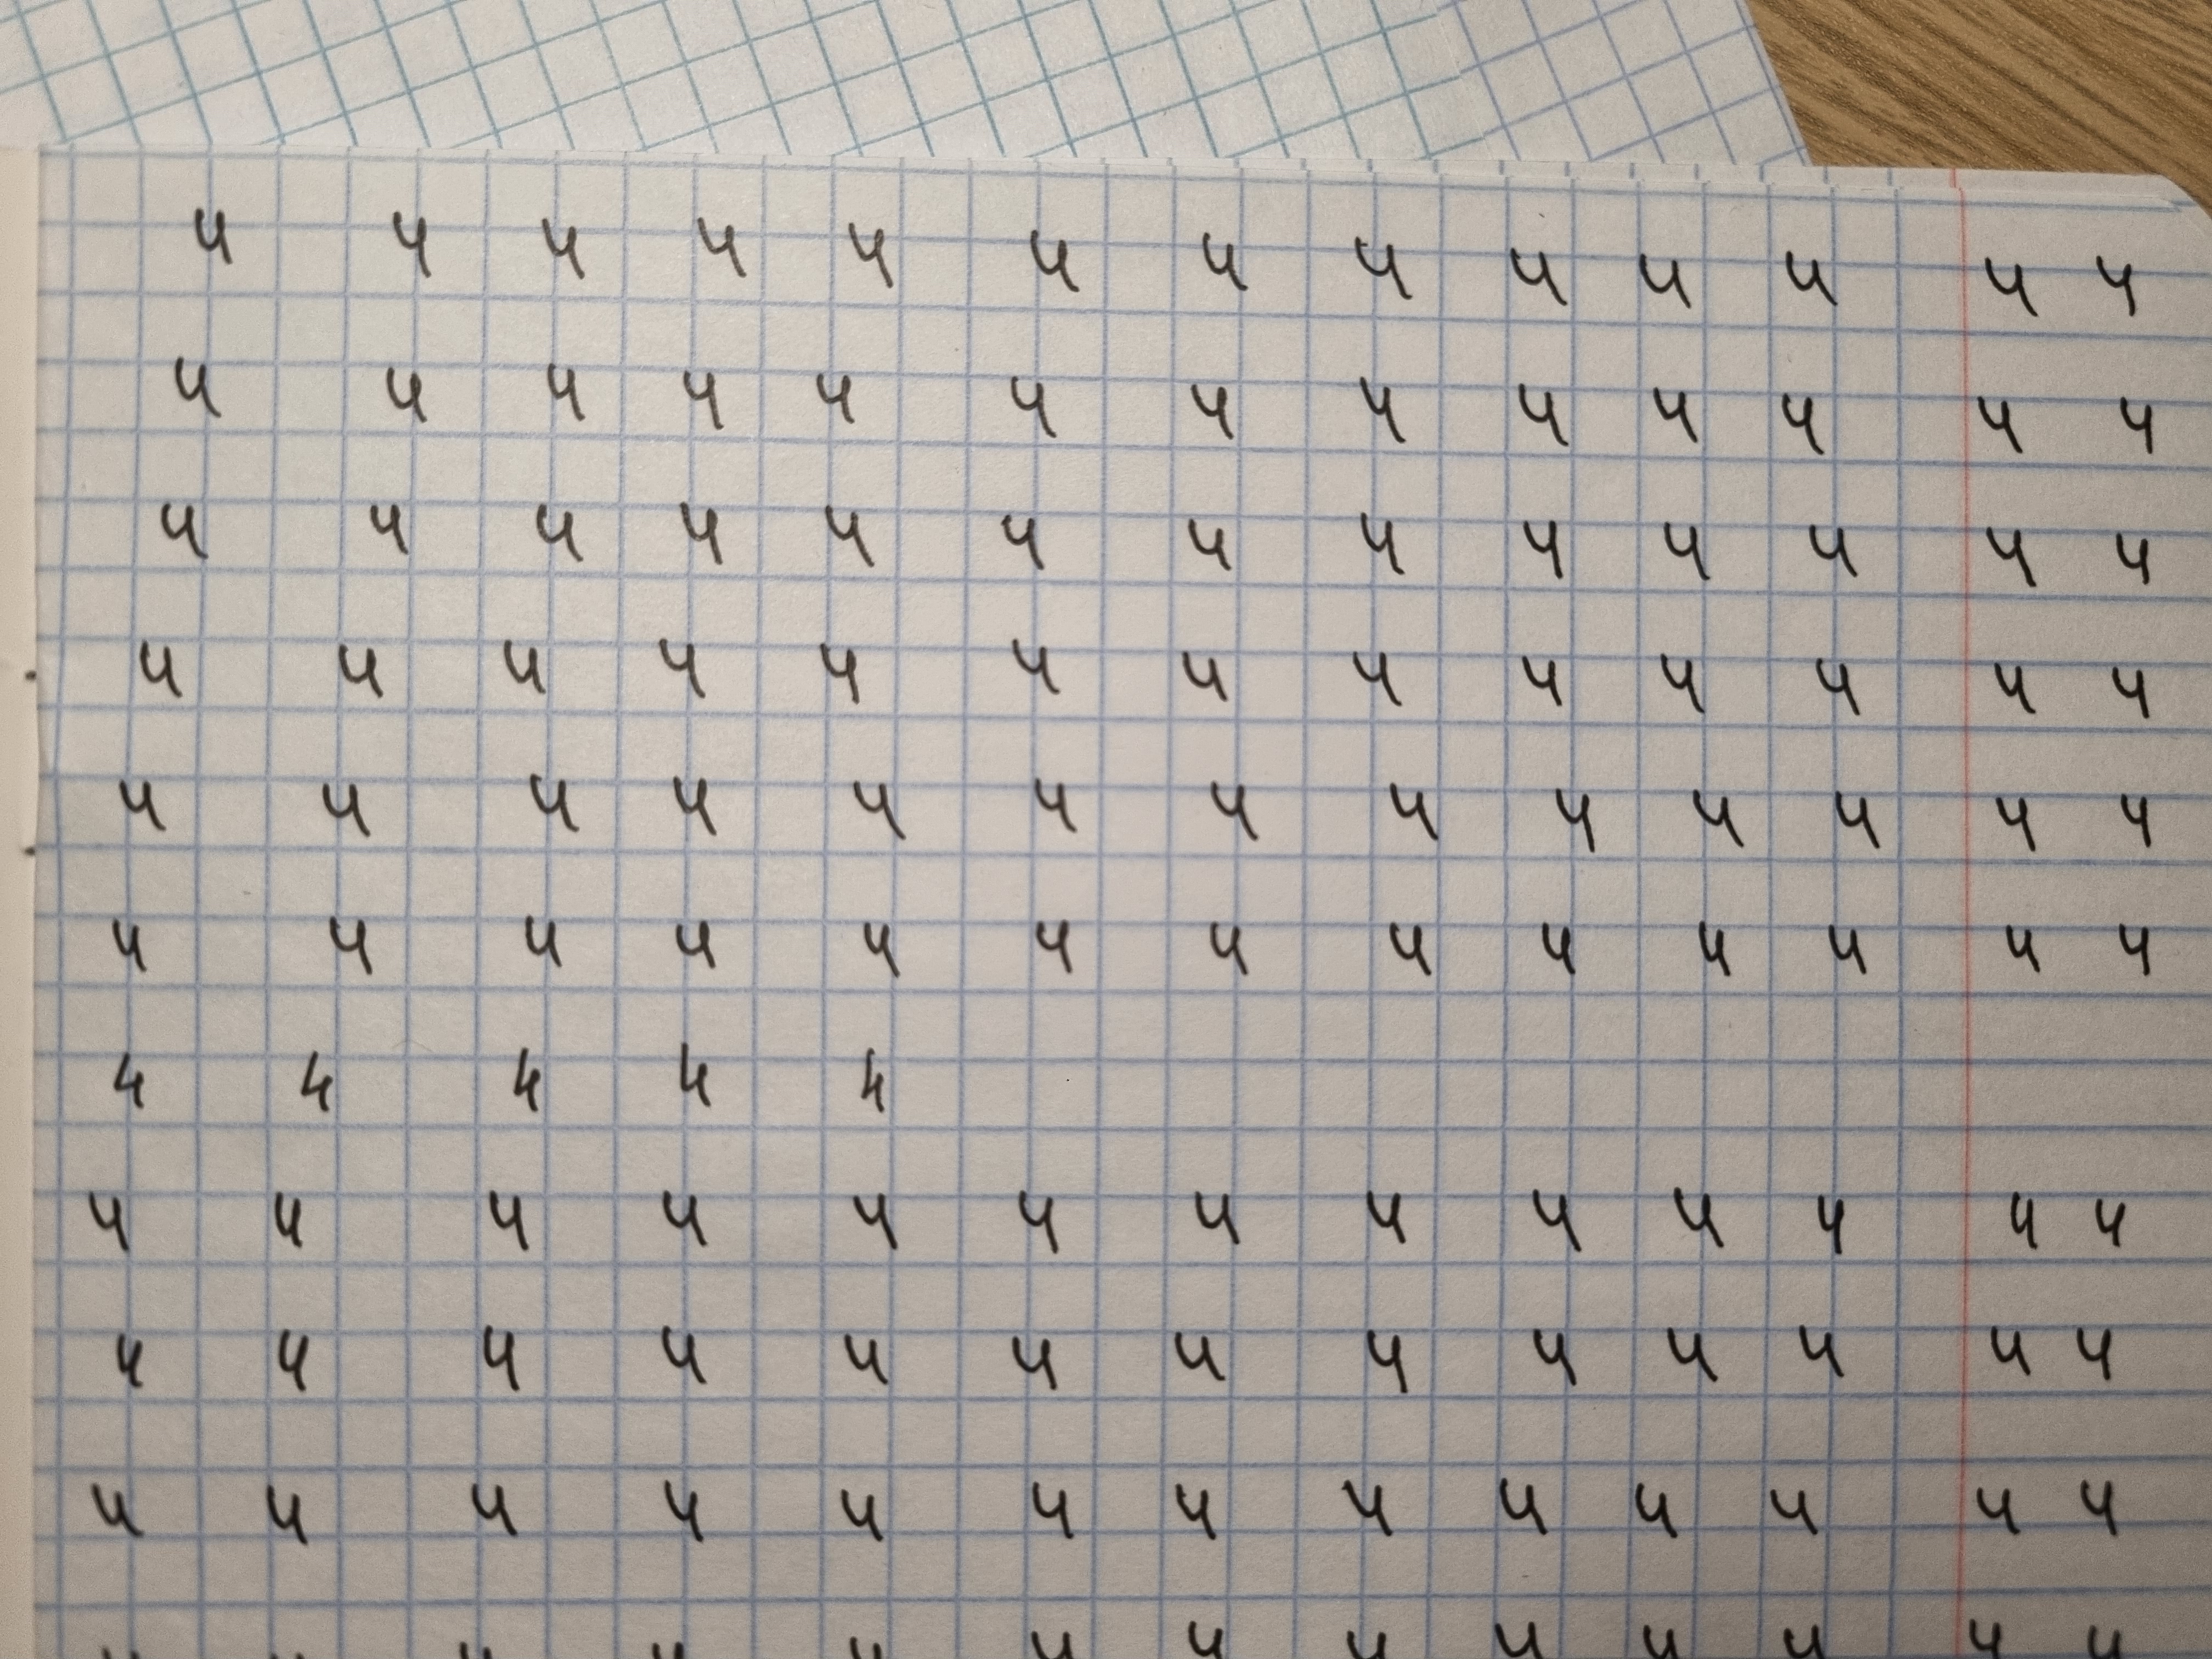 4 4 4 4 4 4 4 4 4 4 4 4 4
4 4 4 4 4 4 4 4 4 4 4 4 4
4 4 4 4 4 4 4 4 4 4 4 4 4
4 4 4 4 4 4 4 4 4 4 4 4 4
4 4 4 4 4 4 4 4 4 4 4 4 4
4 4 4 4 4 4 4 4 4 4 4 4 4
4 4 4 4 4
4 4 4 4 4 4 4 4 4 4 4 4 4
4 4 4 4 4 4 4 4 4 4 4 4 4
4 4 4 4 4 4 4 4 4 4 4 4 4